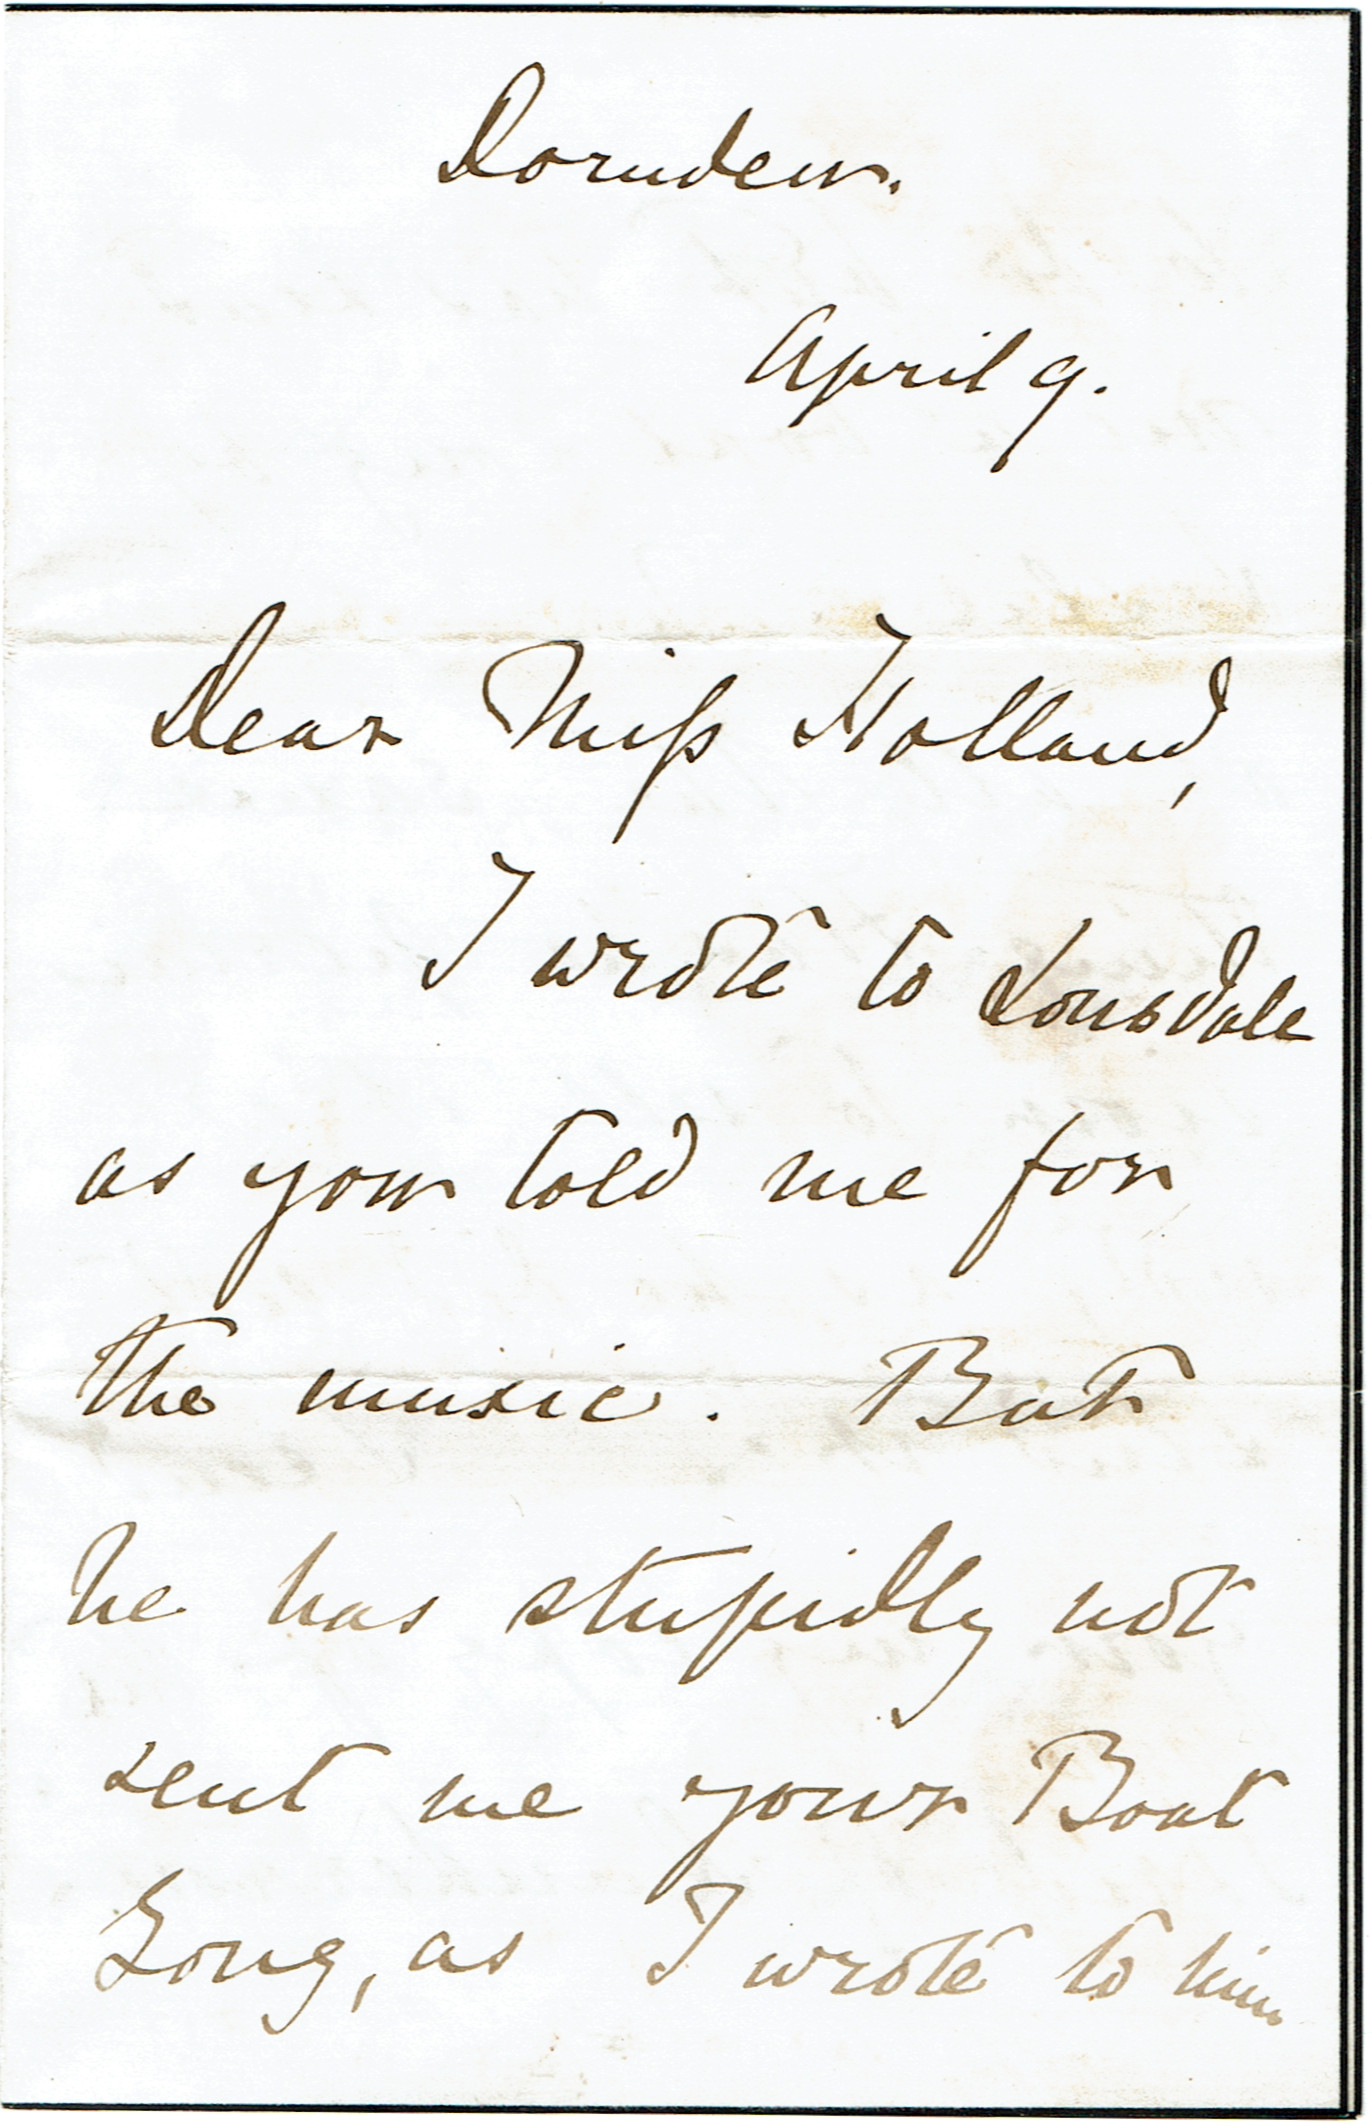 Dornden.
April 9.
Dear Miss Holland,
I wrote to Lonsdale
as you told me for
the music. But
he has stupidly not
sent me your Boat
Song, as I wrote to him